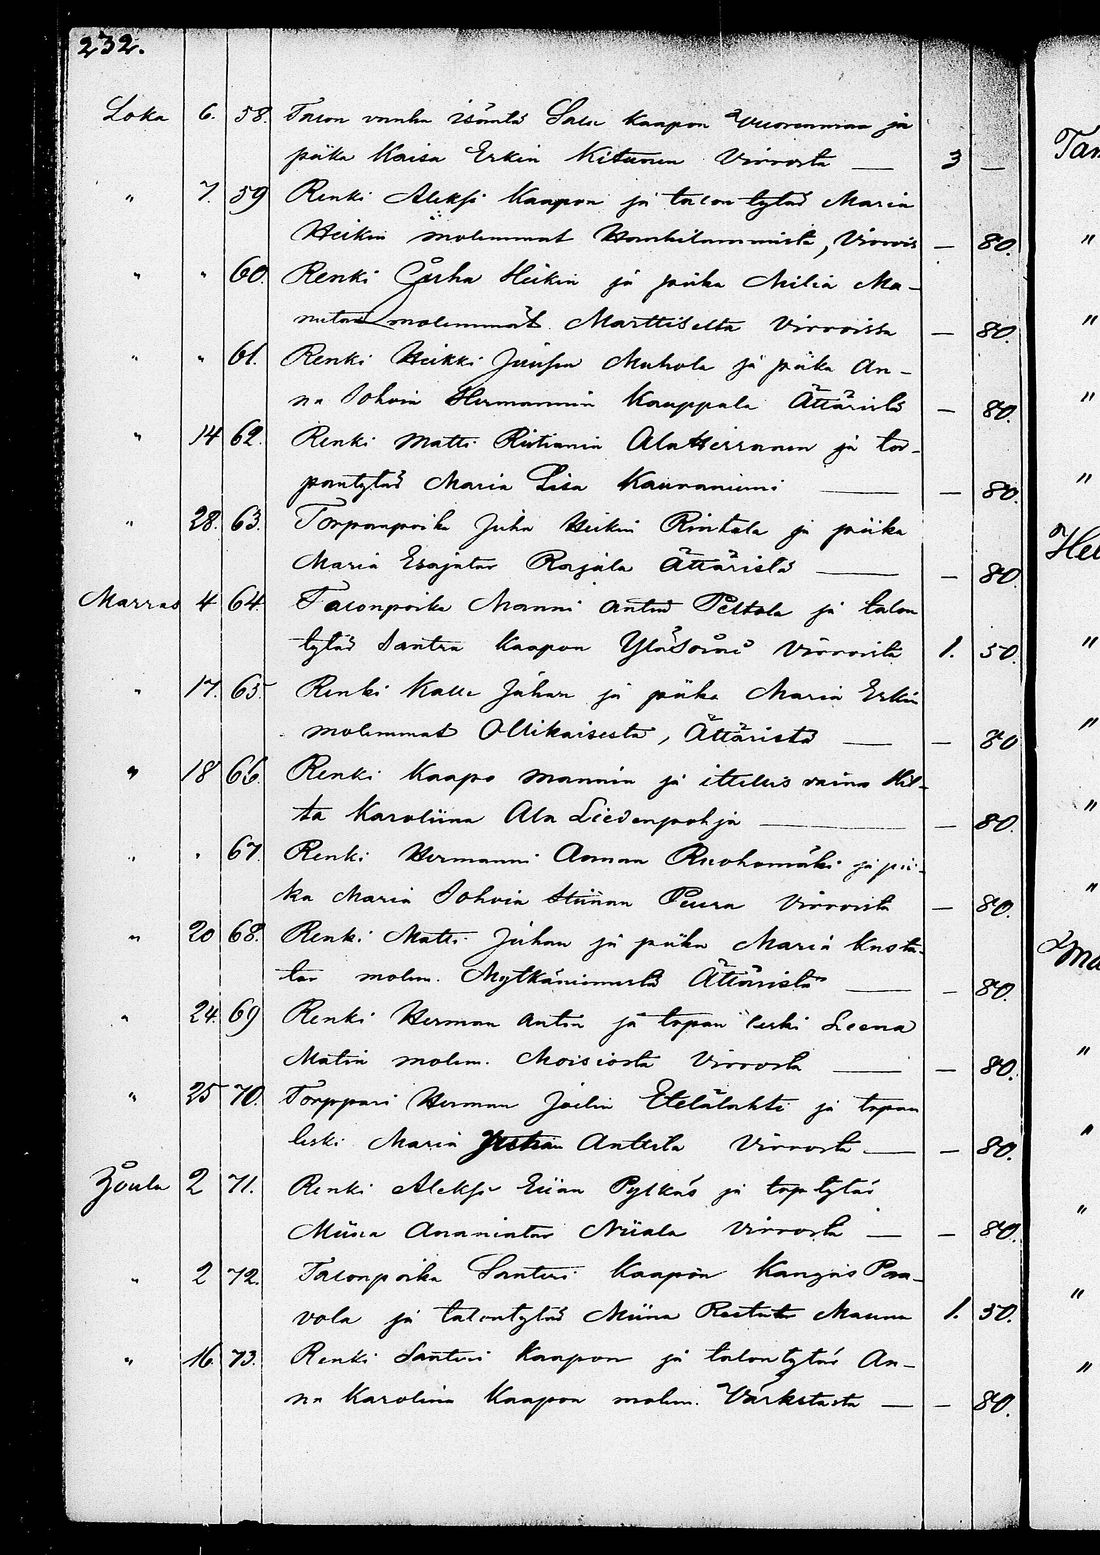 232.
Loka 6. 58. Talon vanha isäntä Salu Kaapon Vuorenmaa ja
piika Kaisa Erkin Kitunen Virroista — 3 —
" 7. 59 Renki Aleksi Kaapon ja talon tytär Maria
Heikin molemmat Hauhilammista, Virrois — 80.
" " 60. Renki Juha Heikin ja piika Milia Ma-
netar molemmat Marttiselta Virroista — 80.
" " 61. Renki Heikki Juujan Muhola ja piika An-
na Sohvia Hermannin Kauppala Ättäristä — 80.
" 14 62. Renki Matti Ristianin AlaHerranen ja tor-
pantytär Maria Lisa Kauraniemi — — 80.
" 28. 63. Torpanpoika Juha Heikin Rintala ja piika
Maria Esajatar Rajala Ättäristä — — 80
Marras 4 64. Talonpoika Manni Antin Peltola ja talon
tytär Santra Kaapon YläSoini Virroista 1. 50.
" 17. 65. Renki Kalle Juhan ja piika Maria Erkin
molemmat Ollikaisesta, Ättäristä — — 80
" 18 66. Renki Kaapo Mannin ja ittellis vaimo Hil-
ta Karoliina Ala Liedenpohja — — 80.
" " 67. Renki Hermanni Aoman Ruohomäki ja pii-
ka Maria Sohvia Stiinan Peura Virroista — 80.
" 20 68. Renki Matti Juhan ja piika Maria Kusta-
tar molem. Mytkäniemestä Ättäristä — — 80.
" 24. 69 Renki Herman Antin ja topan leski Leena
Matin molem. Moisiosta Virrosta — — 80.
" 25 70. Torppari Herman Joelin Etelälahti ja topan
leski Maria Antila Virrosta — — 80.
Joulu 2 71. Renki Aleksi Eliian Pylkäs ja top tytär
Miina Ananiatar Niiala Virrosta — — 80.
" 2 72. Talonpoika Santeri Kaapon Kangas Paa-
vola ja talontytär Miina Mauna 1. 50.
" 16. 73. Renki Santeri Kaapon ja talontytär An-
na Karolina Kaapon molem. Värkstästä — — 80.
Tam
"
"
"
"
Hel
"
"
"
"
"
"
"
"
"
"